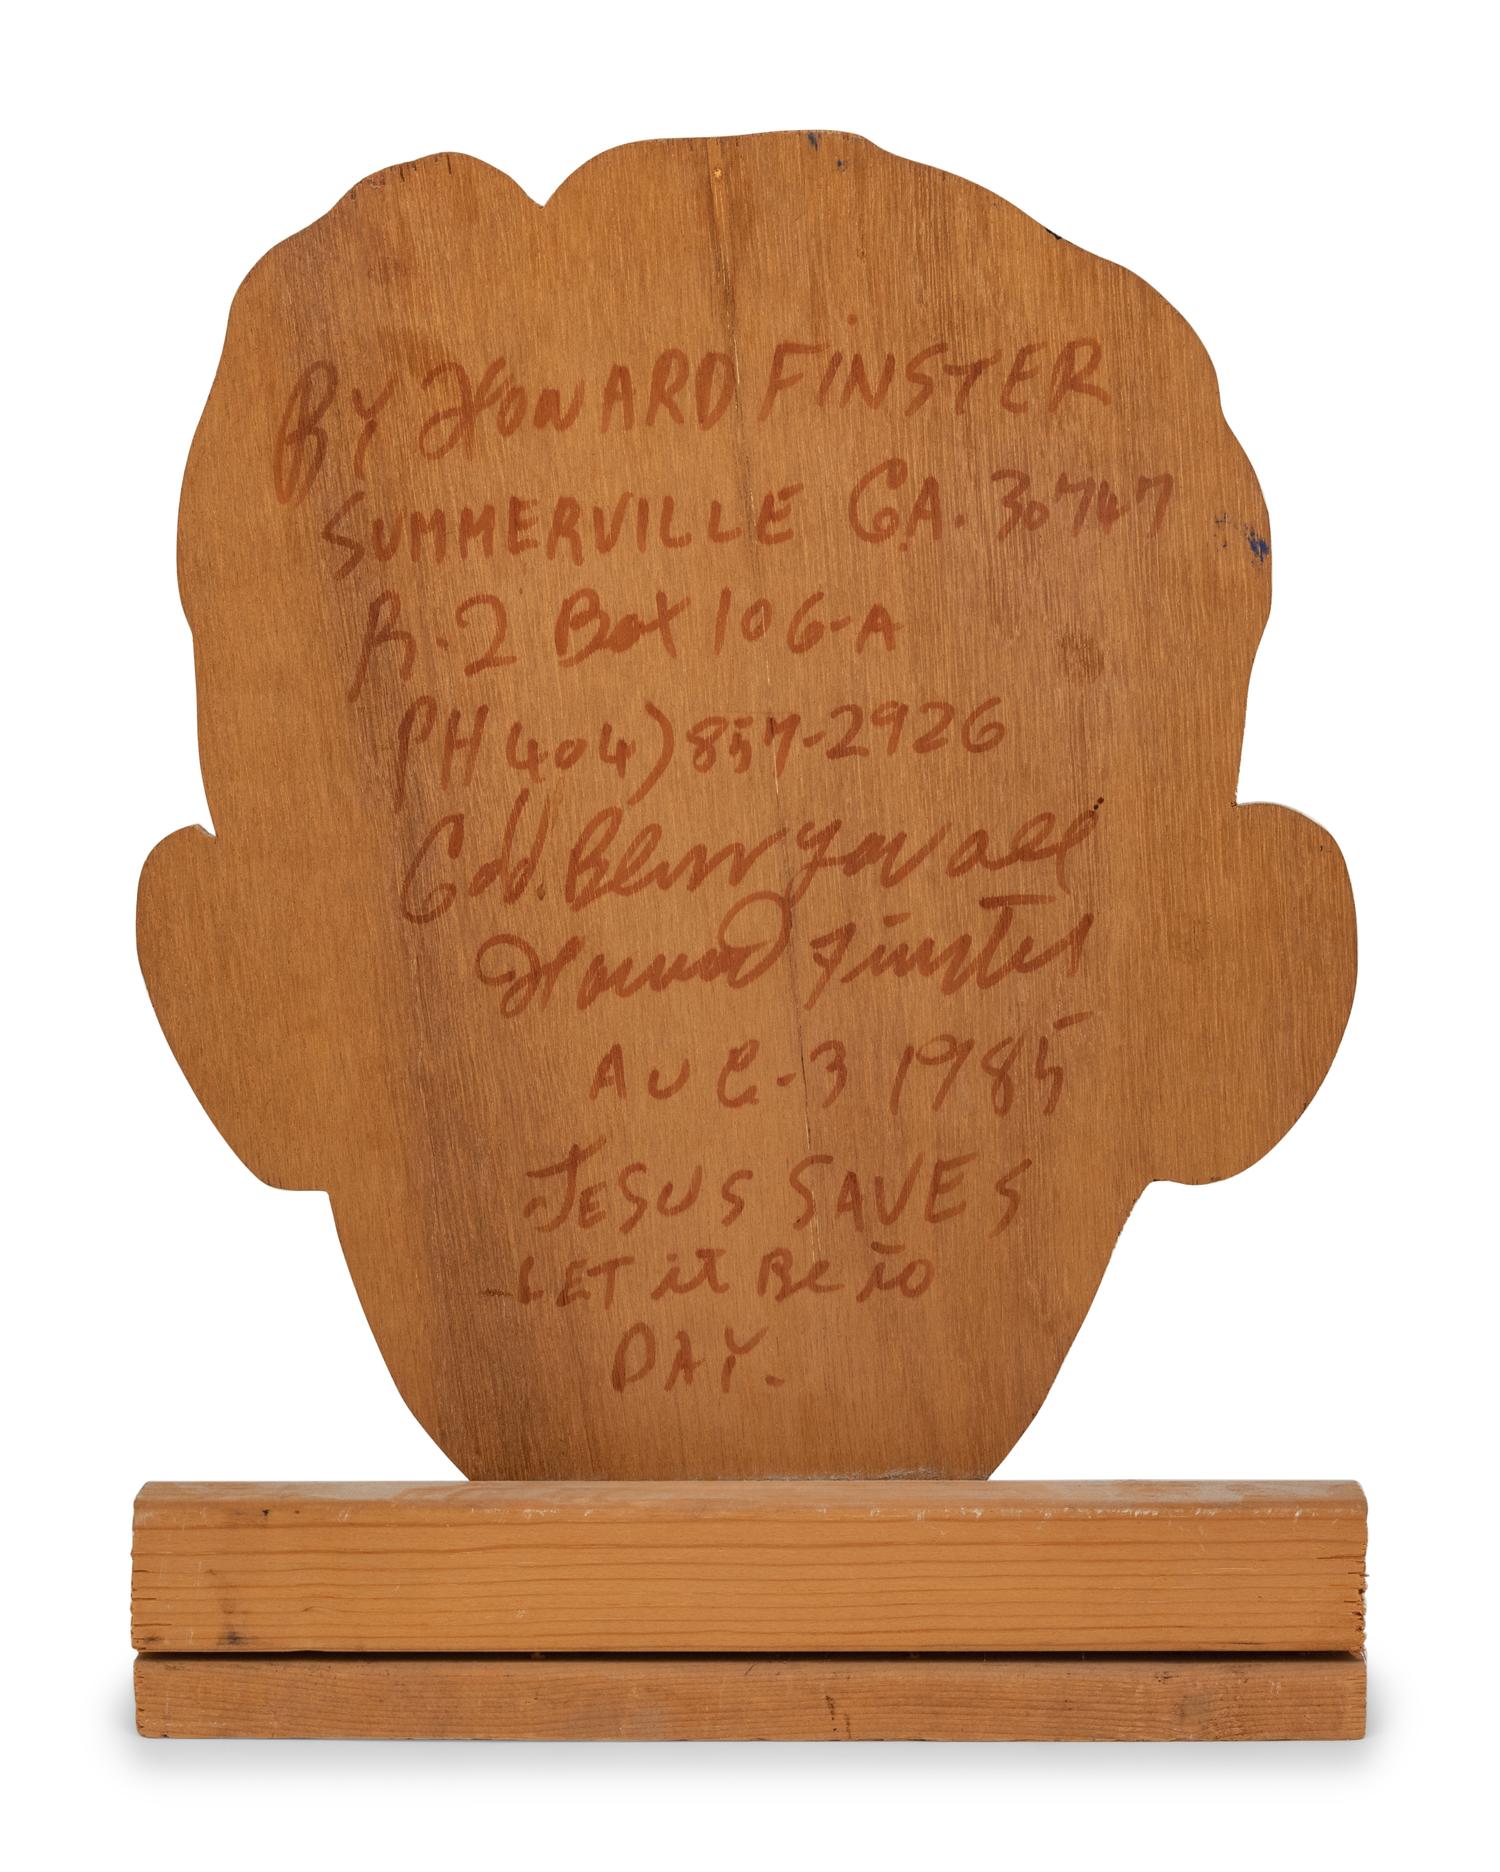 BY HOWARD FINSTER
SUMMERVILLE GA. 30747
R.2 Box 106-A
PH 404) 857-2926
God. Bless you all
Howard Finster
AUG-3 1985
JESUS SAVES
LET it Be to
DAY.